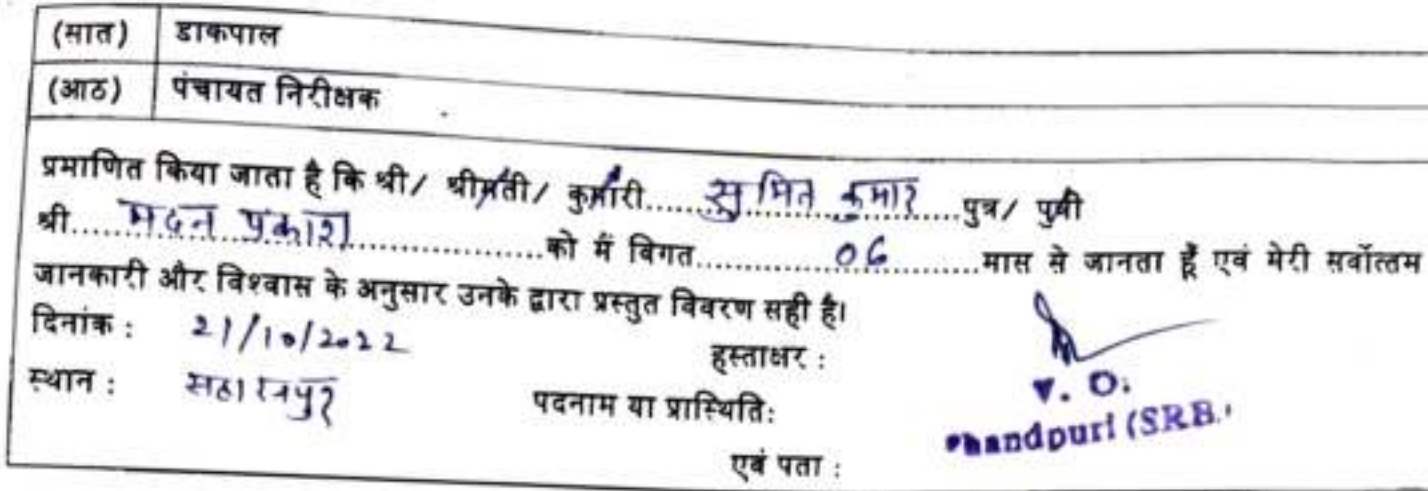 (सात) डाकपाल
(आठ) पंचायत निरीक्षक
प्रमाणित किया जाता है कि श्री/ श्रीमती/ कुमारी.....सुमित कुमार.....पुत्र/ पुत्री
श्री.....मदन प्रकाश.....को मैं विगत.....06.....मास से जानता हूँ एवं मेरी सर्वोत्तम
जानकारी और विश्वास के अनुसार उनके द्वारा प्रस्तुत विवरण सही है।
दिनांक : 21/10/2022 हस्ताक्षर :
स्थान : सहारनपुर पदनाम या प्रास्थिति: V. O.
handpuri (SRB.
एवं पता :